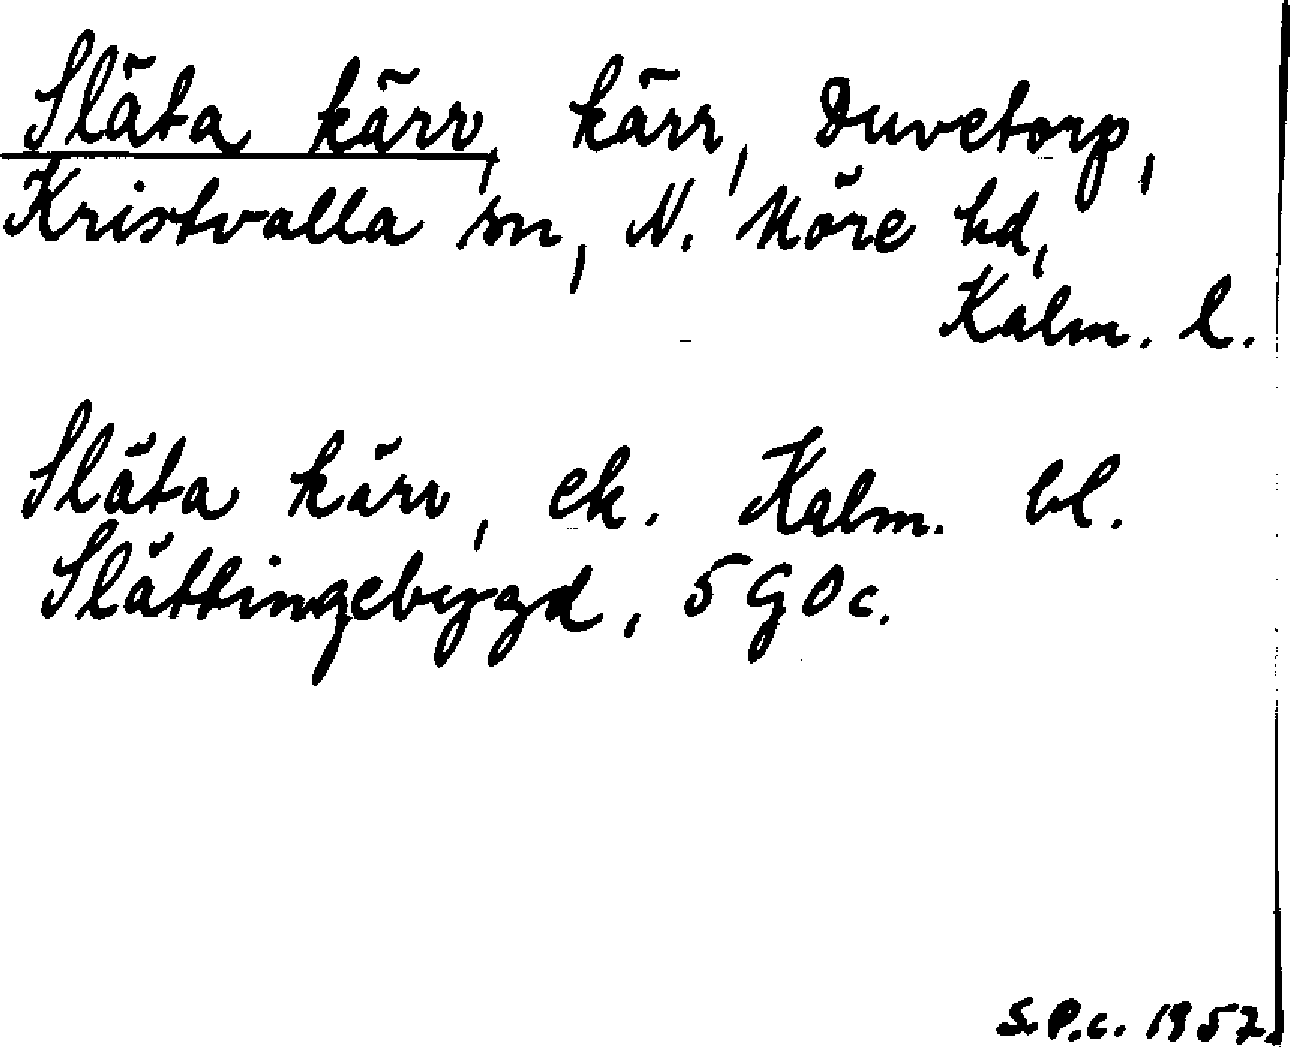 Släta kärr, kärr, Duvetorp,
Kristvalla sn, N. Möre hd,
Kalm. l.
Släta kärr, ek. Kalm. bl.
Slättingebygd, 5 G 0 c.
S.P.c. 1957.